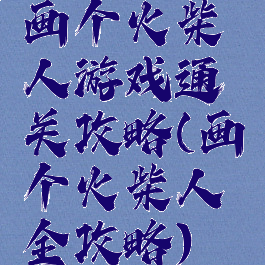 画个火柴
人游戏通
关攻略(画
个火柴人
全攻略)